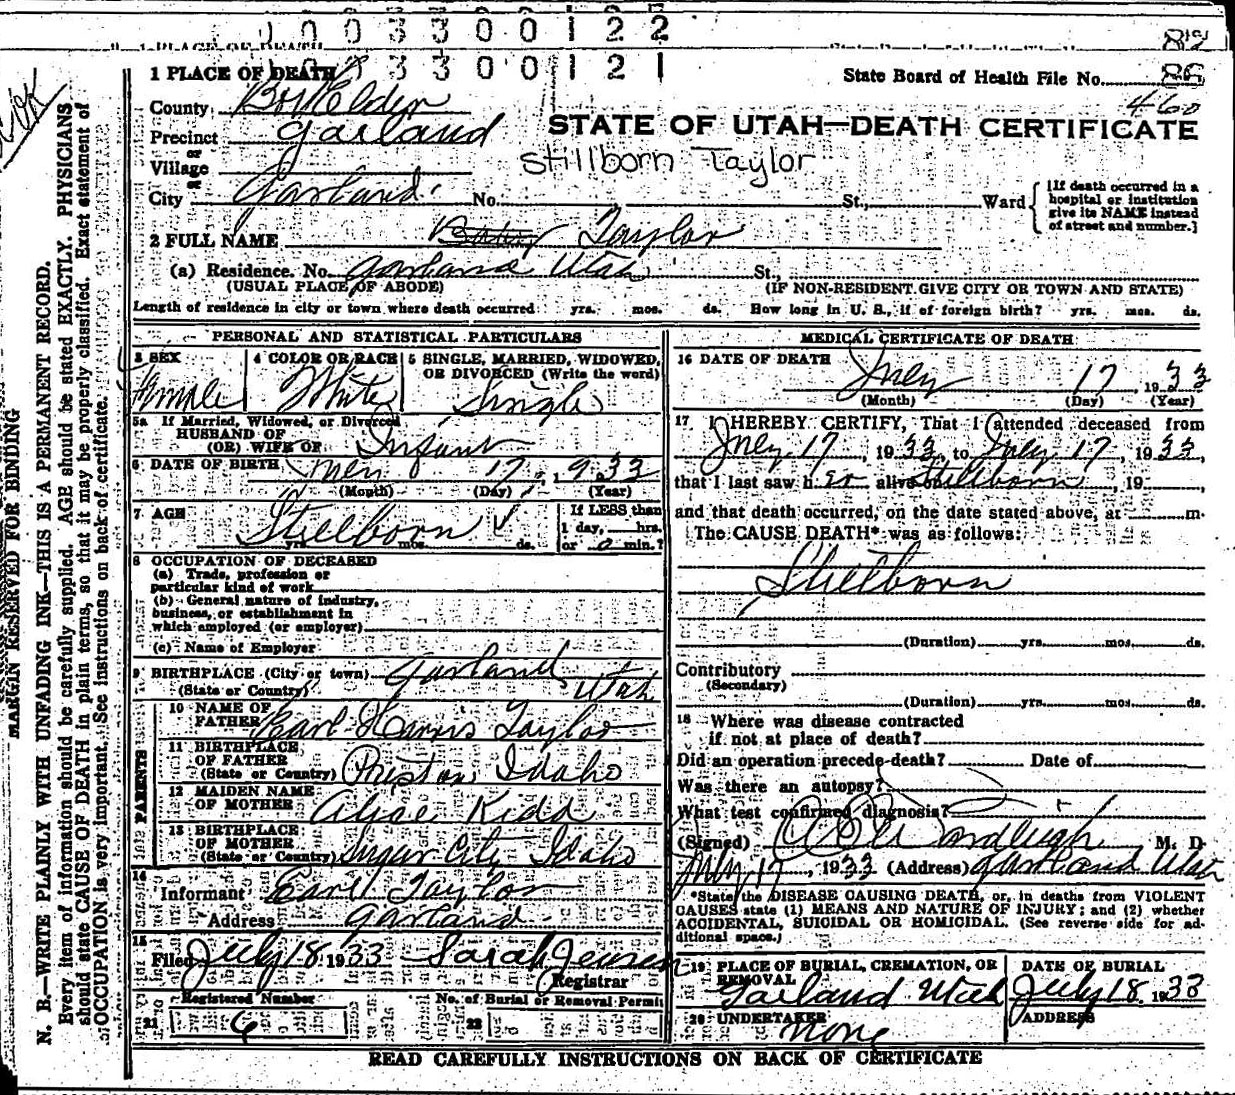 0 0 3 3 0 0 1 2 2
1 PLACE OF DEATH 0 3 3 0 0 1 2 1
State Board of Health File No. 86
460
County Box Elder
Precinct Garland
STATE OF UTAH—DEATH CERTIFICATE
Stillborn Taylor
or
Village
or
City Garland No. St., Ward
[If death occurred in a
hospital or institution
give its NAME instead
of street and number.]
2 FULL NAME Baby Taylor
(a) Residence. No. Garland Utah St.,
(USUAL PLACE OF ABODE) (IF NON-RESIDENT GIVE CITY OR TOWN AND STATE)
Length of residence in city or town where death occurred yrs. mos. ds. How long in U. S., if of foreign birth? yrs. mos. ds.
PERSONAL AND STATISTICAL PARTICULARS
3 SEX 4 COLOR OR RACE 5 SINGLE, MARRIED, WIDOWED,
OR DIVORCED (Write the word)
Female White Single
5a If Married, Widowed, or Divorced
HUSBAND OF
(OR) WIFE OF Infant
6 DATE OF BIRTH 17, 1933
(Month) (Day) (Year)
7 AGE Stillborn
yrs. mos. ds.
If LESS than
1 day, hrs.
or 0 min.?
8 OCCUPATION OF DECEASED
(a) Trade, profession or
particular kind of work
(b) General nature of industry,
business, or establishment in
which employed (or employer)
(c) Name of Employer
9 BIRTHPLACE (City or town) Garland
(State or Country) Utah
PARENTS
10 NAME OF
FATHER Earl Harris Taylor
11 BIRTHPLACE
OF FATHER
(State or Country) Preston, Idaho
12 MAIDEN NAME
OF MOTHER Alice Kidd
13 BIRTHPLACE
OF MOTHER
(State or Country) Sugar City Idaho
14
Informant Earl Taylor
Address Garland
15
Filed July 18 1933 Sarah Jensen
Registrar
Registered Number No. of Burial or Removal Permit
21 6 22
MEDICAL CERTIFICATE OF DEATH
16 DATE OF DEATH
July 17, 1933
(Month) (Day) (Year)
17 I HEREBY CERTIFY, That I attended deceased from
July 17, 1933, to July 17, 1933,
that I last saw h er alive on Stillborn, 19
and that death occurred, on the date stated above, at m.
The CAUSE DEATH* was as follows:
Stillborn
(Duration) yrs. mos. ds.
Contributory
(Secondary)
(Duration) yrs. mos. ds.
18 Where was disease contracted
if not at place of death?
Did an operation precede death? Date of
Was there an autopsy?
What test confirmed diagnosis?
(Signed) M. D.
July 17, 1933 (Address) Garland Utah
*State the DISEASE CAUSING DEATH, or, in deaths from VIOLENT
CAUSES state (1) MEANS AND NATURE OF INJURY; and (2) whether
ACCIDENTAL, SUICIDAL OR HOMICIDAL. (See reverse side for ad-
ditional space.)
19 PLACE OF BURIAL, CREMATION, OR
REMOVAL
Garland Utah
DATE OF BURIAL
July 18, 1933
20 UNDERTAKER
None
ADDRESS
READ CAREFULLY INSTRUCTIONS ON BACK OF CERTIFICATE
MARGIN RESERVED FOR BINDING
N. B.—WRITE PLAINLY WITH UNFADING INK—THIS IS A PERMANENT RECORD.
Every item of information should be carefully supplied. AGE should be stated EXACTLY. PHYSICIANS
should state CAUSE OF DEATH in plain terms, so that it may be properly classified. Exact statement of
OCCUPATION is very important. See instructions on back of certificate.